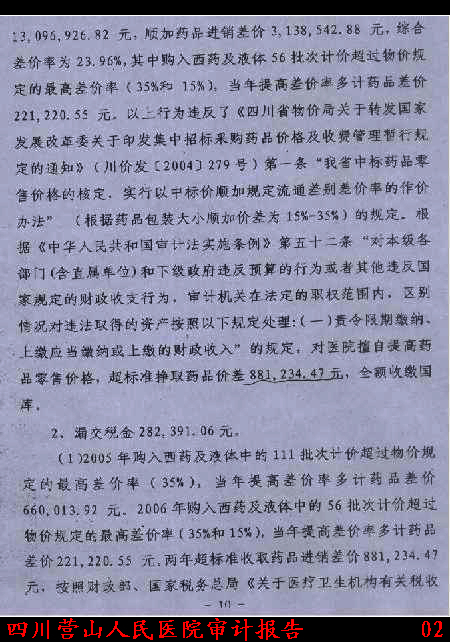 13,096,926.82 元, 顺加药品进销差价 3,138,542.88 元, 综合
差价率为 23.96%, 其中购入西药及液体 56 批次计价超过物价规
定的最高差价率 (35%和 15%), 当年提高差价率多计药品差价
221,220.55 元。以上行为违反了《四川省物价局关于转发国家
发展改革委关于印发集中招标采购药品价格及收费管理暂行规
定的通知》(川价发〔2004〕279 号) 第一条 “我省中标药品零
售价格的核定, 实行以中标价顺加规定流通差别差价率的作价
办法” (根据药品包装大小顺加价差为 15%-35%) 的规定。根
据《中华人民共和国审计法实施条例》第五十二条 “对本级各
部门(含直属单位)和下级政府违反预算的行为或者其他违反国
家规定的财政收支行为, 审计机关在法定的职权范围内, 区别
情况对违法取得的资产按照以下规定处理:(一)责令限期缴纳、
上缴应当缴纳或上缴的财政收入” 的规定, 对医院擅自提高药
品零售价格, 超标准挣取药品价差 881,234.47 元, 全额收缴国
库。
2、漏交税金 282,391.06 元。
(1)2005 年购入西药及液体中的 111 批次计价超过物价规
定的最高差价率 (35%), 当年提高差价率多计药品差价
660,013.92 元。2006 年购入西药及液体中的 56 批次计价超过
物价规定的最高差价率(35%和15%), 当年提高差价率多计药品
差价 221,220.55 元。两年超标准收取药品进销差价 881,234.47
元, 按照财政部、国家税务总局《关于医疗卫生机构有关税收
- 10 -
四川营山人民医院审计报告 02